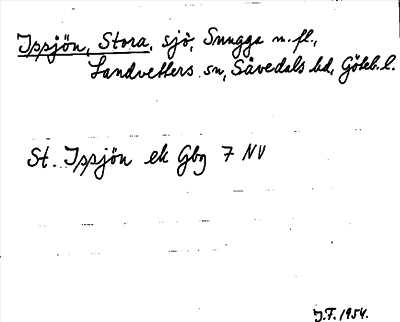 Issjön, Stora, sjö, Snugga m.fl.,
Landvetters sn, Sävedals hd, Göteb. l.
St. Issjön ek Gbg 7 NV
J.F. 1954.